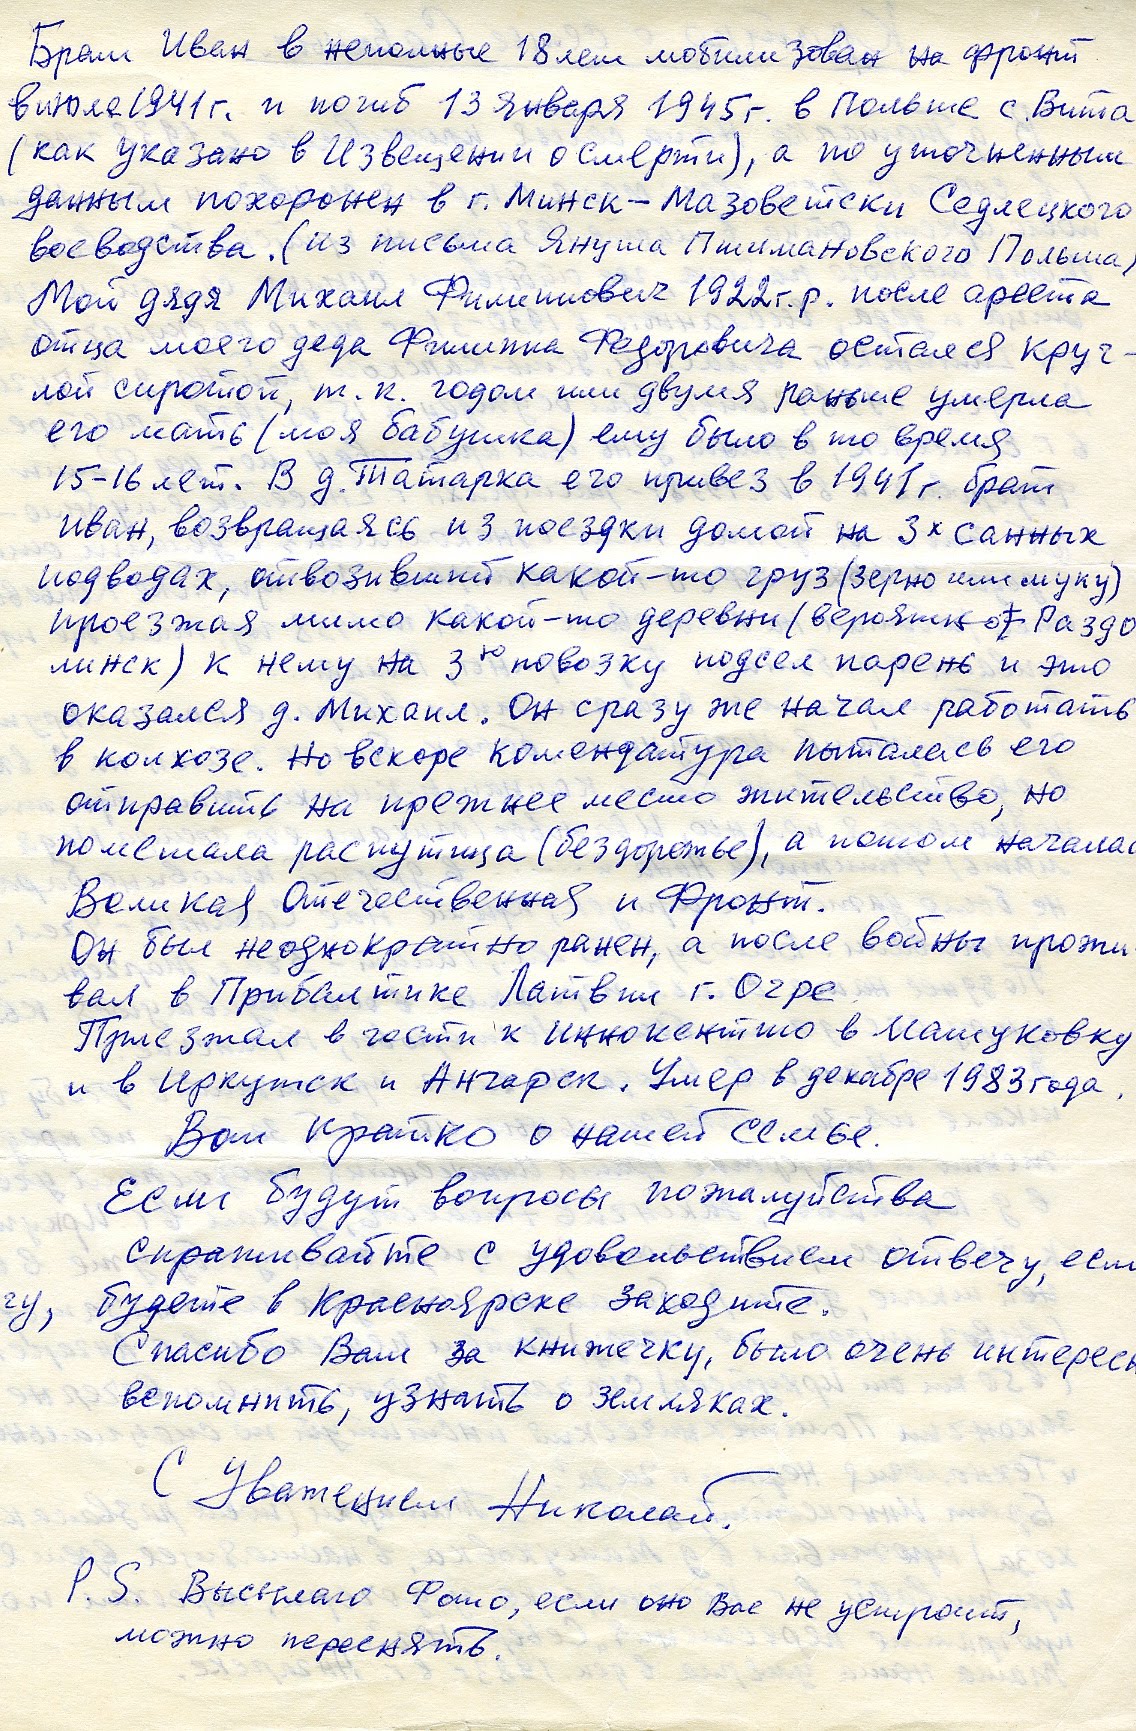 Брат Иван в неполные 18 лет мобилизован на фронт
в июле 1941 г. и погиб 13 января 1945 г. в Польше с. Вита
(как указано в Извещении о смерти), а по уточненным
данным похоронен в г. Минск-Мазоветски Седлецкого
воеводства. (из письма Януша Пшимановского Польша)
Мой дядя Михаил Филиппович 1922 г.р. после ареста
отца моего деда Филиппа Федоровича остался круг-
лой сиротой, т.к. годом или двумя раньше умерла
его мать (моя бабушка) ему было в то время
15-16 лет. В д. Татарка его привез в 1941 г. брат
Иван, возвращаясь из поездки домой на 3х санных
подводах, отвозивший какой-то груз (зерно или муку)
проезжая мимо какой-то деревни (вероятно Раздо
линск) к нему на 3ю повозку подсел парень и это
оказался д. Михаил. Он сразу же начал работать
в колхозе. Но вскоре комендатура пыталась его
отправить на прежнее место жительство, но
помешала распутица (бездорожье), а потом началас
Великая Отечественная и Фронт.
Он был неоднократно ранен, а после войны прожи-
вал в Прибалтике Латвии г. Огре.
Приезжал в гости к Иннокентию в Машуковку
и в Иркутск и Ангарск. Умер в декабре 1983 года.
Вот кратко о нашей семье.
Если будут вопросы пожалуйства
спрашивайте с удовольствием отвечу, если
гу, будете в Красноярске заходите.
Спасибо Вам за книжечку, было очень интересн
вспомнить, узнать о земляках.
С Уважением Николай.
P.S. Высылаю Фото, если оно Вас не устроит,
можно переснять.